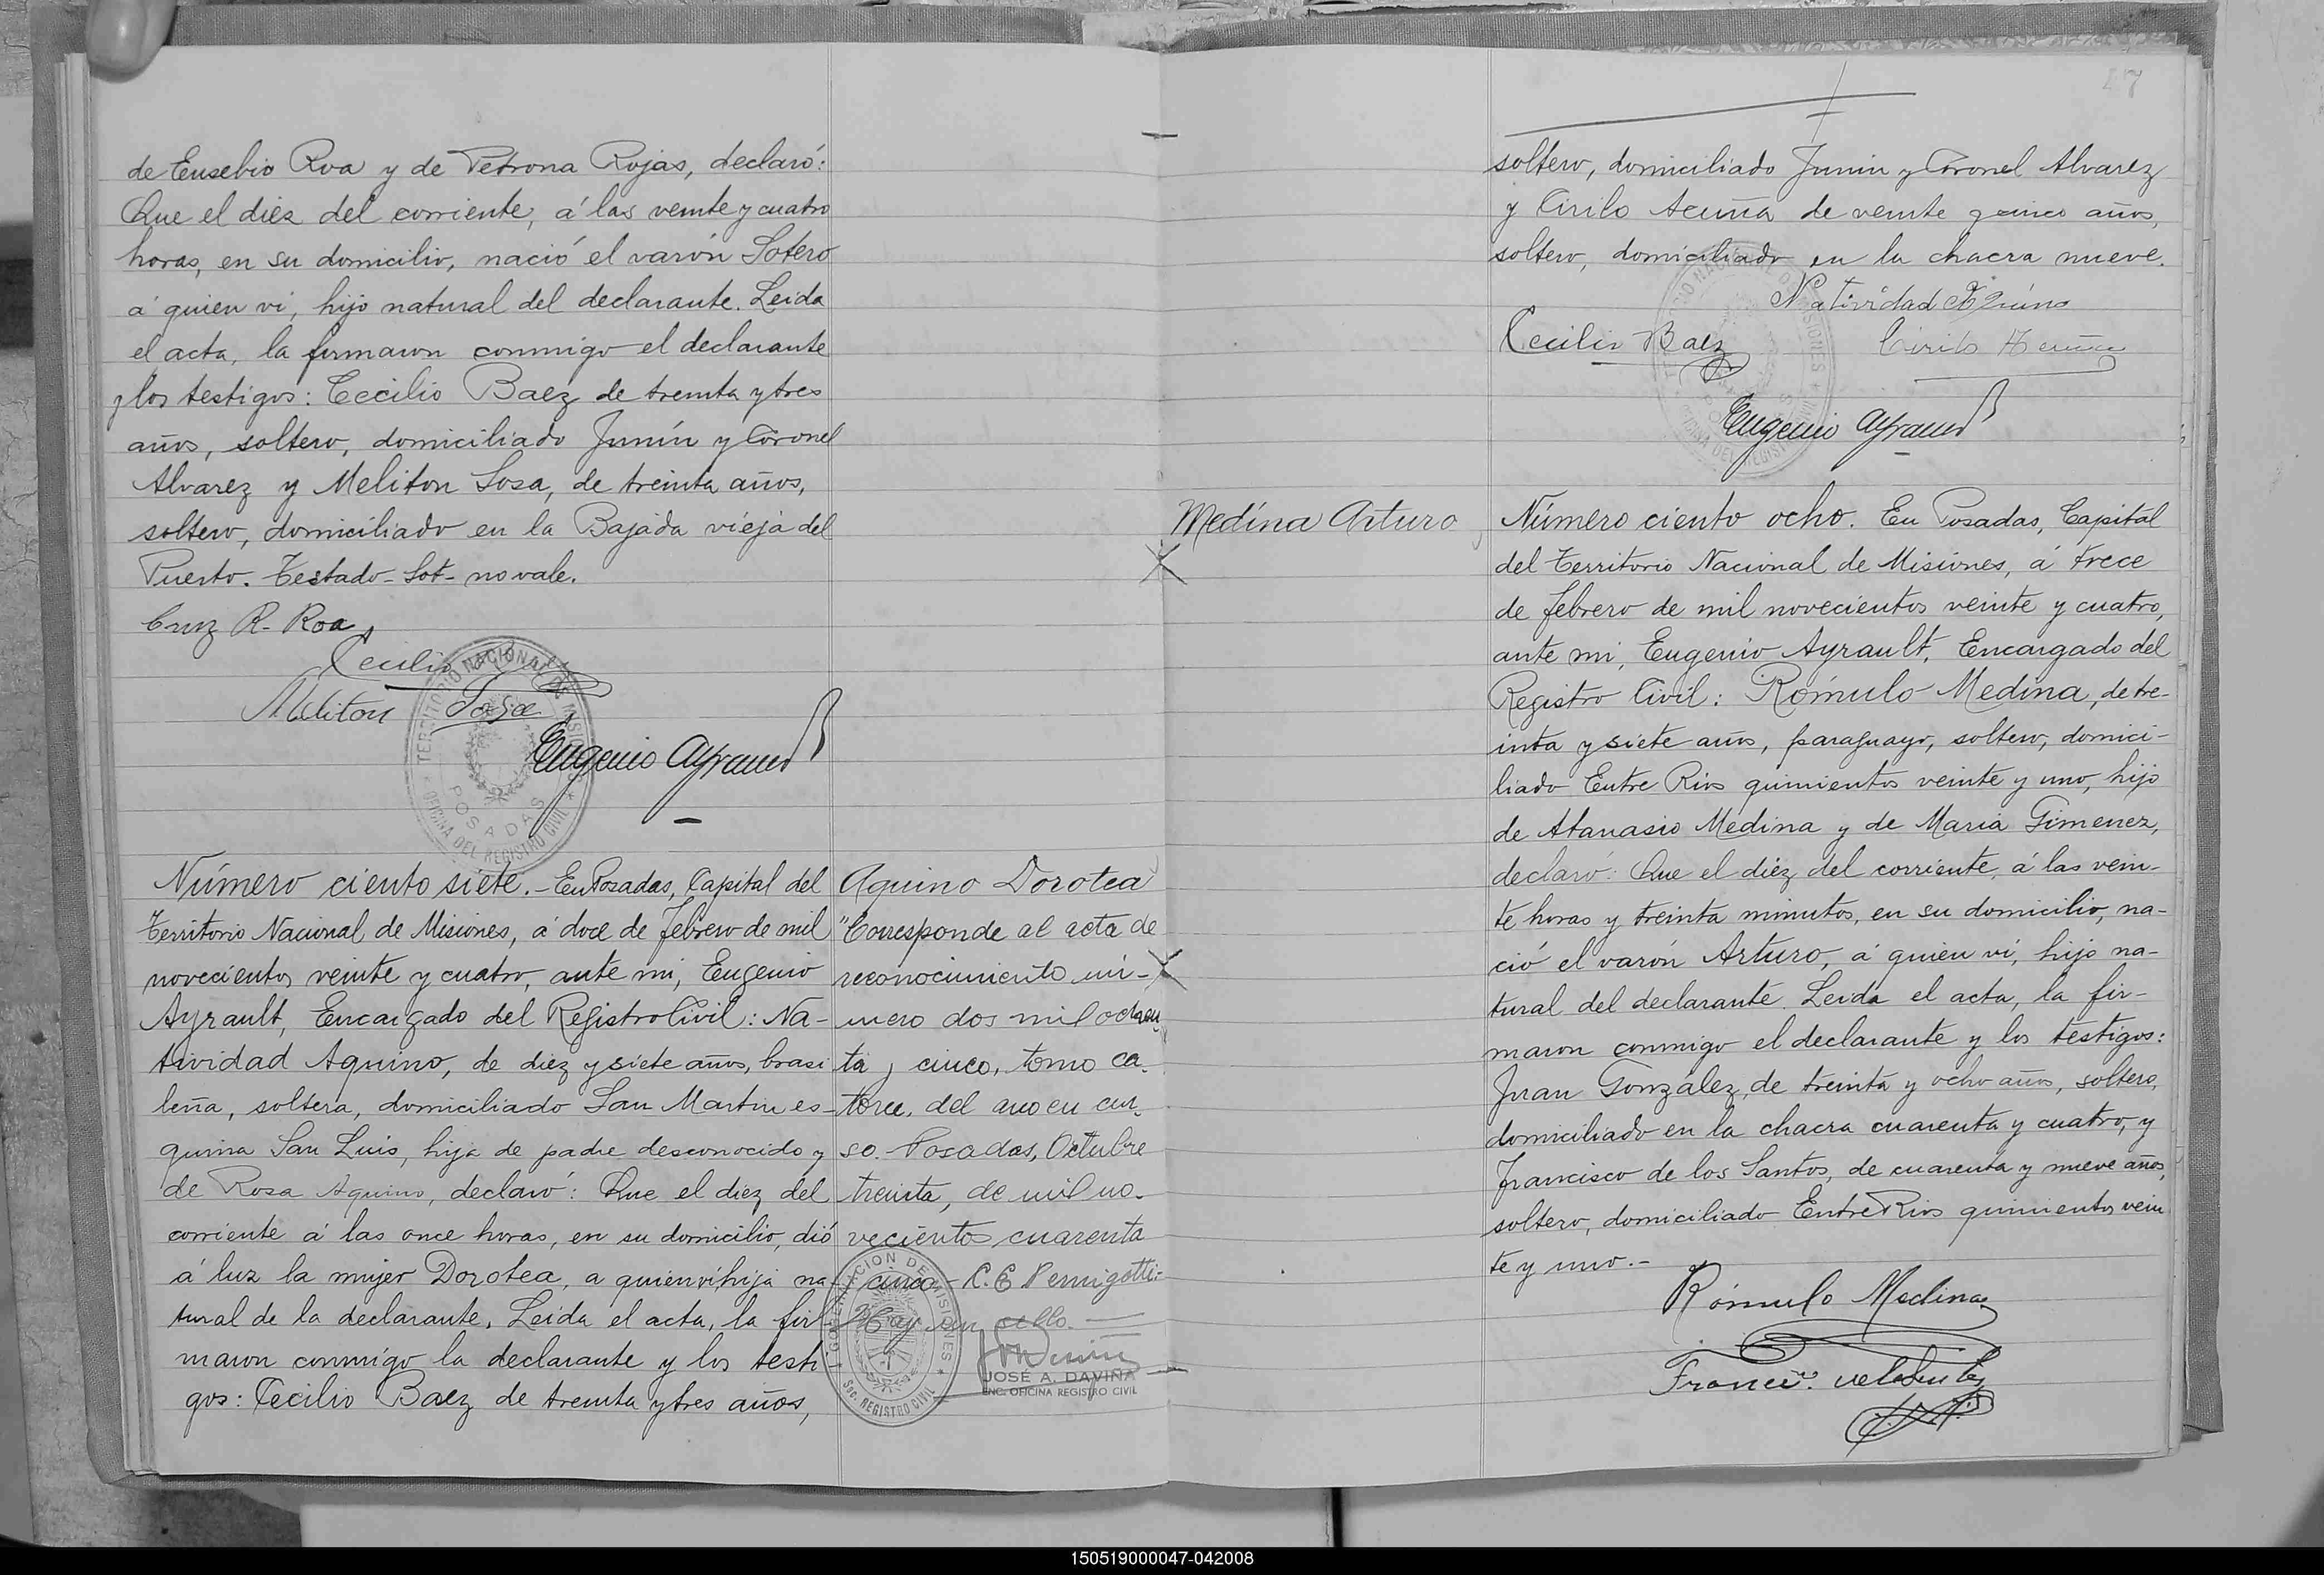 de Eusebio Roa y de Petrona Rojas, declaró:
Que el diez del corriente, á las veinte y cuatro
horas, en su domicilio, nació el varón Sotero
á quien vi, hijo natural del declarante. Leida
el acta, la firmaron conmigo el declarante
y los testigos: Cecilio Baez de treinta y tres
años, soltero, domiciliado Junín y Coronel
Alvarez y Meliton Sosa, de treinta años,
soltero, domiciliado en la Bajada vieja del
Puerto. Testado-Sot-no vale.
Cruz R. Roa
Cecilio
Meliton Sosa
TERRITORIO NACIONAL DE MISIONES
POSADAS
OFICINA DEL REGISTRO CIVIL
Eugenio Ayrault
Número ciento siete.-En Posadas, Capital del
Territorio Nacional de Misiones, á doce de febrero de mil
novecientos veinte y cuatro, ante mi, Eugenio
Ayrault, Encargado del Registro Civil: Na-
tividad Aquino, de diez y siete años, brasi
leña, soltera, domiciliado San Martin es-
quina San Luis, hija de padre desconocido y
de Rosa Aquino, declaró: Que el diez del
corriente á las once horas, en su domicilio, dió
á luz la mujer Dorotea, a quien ví hija na-
tural de la declarante. Leida el acta, la fir-
maron conmigo la declarante y los testi-
gos: Cecilio Baez de treinta y tres años,
Aquino Dorotea
"Corresponde al acta de
reconocimiento nú-
mero dos mil ochen
ta y cinco, tomo ca-
torce, del año en cur-
so. Posadas, Octubre
treinta, de mil no-
vecientos cuarenta
cinco- C. E Pernigotti-
Hay un sello.
GOBERNACION DE MISIONES
Sec. REGISTRO CIVIL
JOSÉ A. DAVIÑA
ENC. OFICINA REGISTRO CIVIL
soltero, domiciliado Junin y Coronel Alvarez
y Cirilo Acuña de veinte y cinco años,
soltero, domiciliado en la chacra nueve.
Natividad Aquino
Cecilio Baez
Cirilo Acuña
Eugenio Ayrault
Medina Arturo
Número ciento ocho. En Posadas, Capital
del Territorio Nacional de Misiones, á trece
de febrero de mil novecientos veinte y cuatro,
ante mi, Eugenio Ayrault, Encargado del
Registro Civil: Rómulo Medina, de tre-
inta y siete años, paraguayo, soltero, domici-
liado Entre Rios quinientos veinte y uno, hijo
de Atanasio Medina y de Maria Gimenez,
declaró: Que el diéz del corriente, á las vein-
te horas y treinta minutos, en su domicilio, na-
ció el varón Arturo, á quien ví, hijo na-
tural del declarante. Leida el acta, la fir-
maron conmigo el declarante y los testigos:
Juan González, de treinta y ocho años, soltero,
domiciliado en la chacra cuarenta y cuatro, y
Francisco de los Santos, de cuarenta y nueve años,
soltero, domiciliado Entre Rios quinientos vein
te y uno.-
Rómulo Medina
150519000047-042008